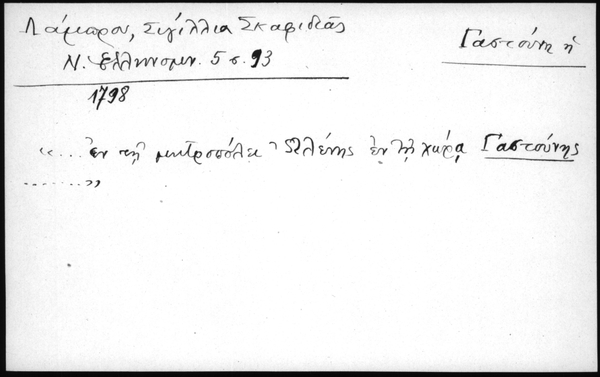 Λάμπρου, Σιγίλλια Σκαφιδιᾶς
Γαστούνη ἡ
Ν. Ἑλληνομν. 5 σ. 93
1798
«... ἐν τῇ μητροπόλει Ὠλένης ἐν τῇ χώρᾳ Γαστούνης
........»